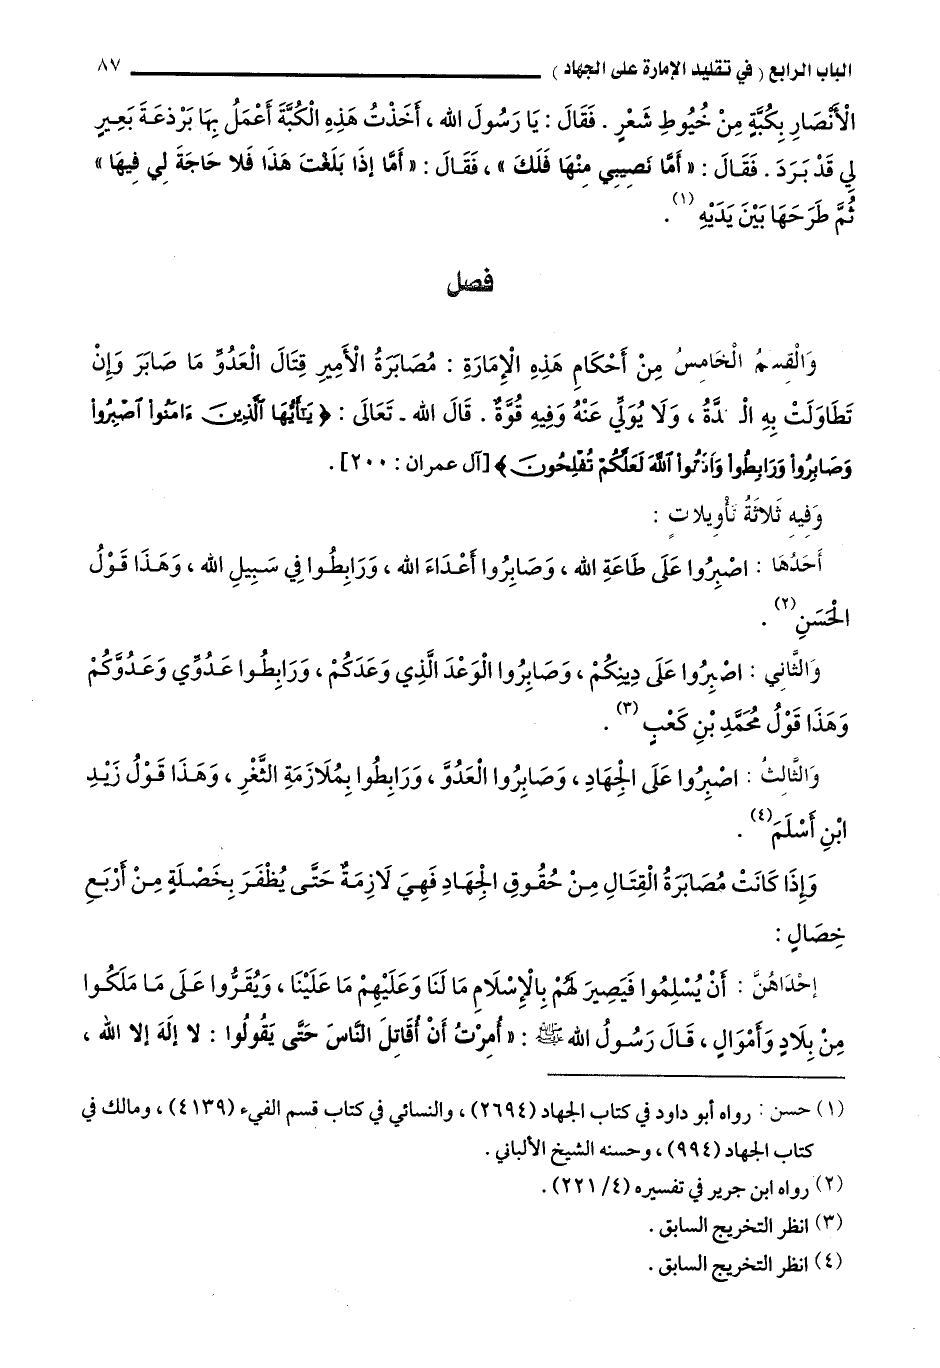 الباب الرابع ( في تقليد الإمارة على الجهاد ) ٨٧
الْأَنْصَارِ بِكُبَّةٍ مِنْ خُيُوطِ شَعْرٍ . فَقَالَ : يَا رَسُولَ الله ، أَخَذْتُ هَذِهِ الْكُبَّةَ أَعْمَلُ بِهَا بَرْذعَةَ بَعِيرٍ
لِي قَدْ بَرَدَ . فَقَالَ : « أَمَّا نَصِيبِي مِنْهَا فَلَكَ » ، فَقَالَ : « أَمَّا إذَا بَلَغَتْ هَذَا فَلا حَاجَةَ لِي فِيهَا »
ثُمَّ طَرَحَهَا بَيْنَ يَدَيْهِ (١) .
فصل
وَالْقِسمُ الْخَامِسُ مِنْ أَحْكَامِ هَذِهِ الْإِمَارَةِ : مُصَابَرَةُ الْأَمِيرِ قِتَالَ الْعَدُوِّ مَا صَابَرَ وَإِنْ
تَطَاوَلَتْ بِهِ الْمدَّةُ ، وَلَا يُوَلِّي عَنْهُ وَفِيهِ قُوَّةٌ . قَالَ الله ـ تَعَالَى : ﴿ يَٰٓأَيُّهَا ٱلَّذِينَ ءَامَنُوا۟ ٱصْبِرُوا۟
وَصَابِرُوا۟ وَرَابِطُوا۟ وَٱتَّقُوا۟ ٱللَّهَ لَعَلَّكُمْ تُفْلِحُونَ ﴾ [آل عمران : ٢٠٠] .
وَفِيهِ ثَلَاثَةُ تَأْوِيلَاتٍ :
أَحَدُهَا : اصْبِرُوا عَلَى طَاعَةِ الله ، وَصَابِرُوا أَعْدَاءَ الله ، وَرَابِطُوا فِي سَبِيلِ الله ، وَهَذَا قَوْلُ
الْحَسَنِ (٢) .
وَالثَّانِي : اصْبِرُوا عَلَى دِينِكُمْ ، وَصَابِرُوا الْوَعْدَ الَّذِي وَعَدَكُمْ ، وَرَابِطُوا عَدُوِّي وَعَدُوَّكُمْ
وَهَذَا قَوْلُ مُحَمَّدِ بْنِ كَعْبٍ (٣) .
وَالثَّالِثُ : اصْبِرُوا عَلَى الْجِهَادِ ، وَصَابِرُوا الْعَدُوَّ ، وَرَابِطُوا بِمُلَازَمَةِ الثَّغْرِ ، وَهَذَا قَوْلُ زَيْدِ
ابْنِ أَسْلَمَ (٤) .
وَإِذَا كَانَتْ مُصَابَرَةُ الْقِتَالِ مِنْ حُقُوقِ الْجِهَادِ فَهِيَ لَازِمَةٌ حَتَّى يُظْفَرَ بِخَصْلَةٍ مِنْ أَرْبَعِ
خِصَالٍ :
إحْدَاهُنَّ : أَنْ يُسْلِمُوا فَيَصِيرَ لَهُمْ بِالْإِسْلَامِ مَا لَنَا وَعَلَيْهِمْ مَا عَلَيْنَا ، وَيُقَرُّوا عَلَى مَا مَلَكُوا
مِنْ بِلَادٍ وَأَمْوَالٍ ، قَالَ رَسُولُ الله ﷺ : « أُمِرْتُ أَنْ أُقَاتِلَ النَّاسَ حَتَّى يَقُولُوا : لا إلَهَ إلا الله ،
(١) حسن : رواه أبو داود في كتاب الجهاد (٢٦٩٤) ، والنسائي في كتاب قسم الفيء (٤١٣٩) ، ومالك في
كتاب الجهاد (٩٩٤) ، وحسنه الشيخ الألباني .
(٢) رواه ابن جرير في تفسيره (٤/ ٢٢١) .
(٣) انظر التخريج السابق .
(٤) انظر التخريج السابق .